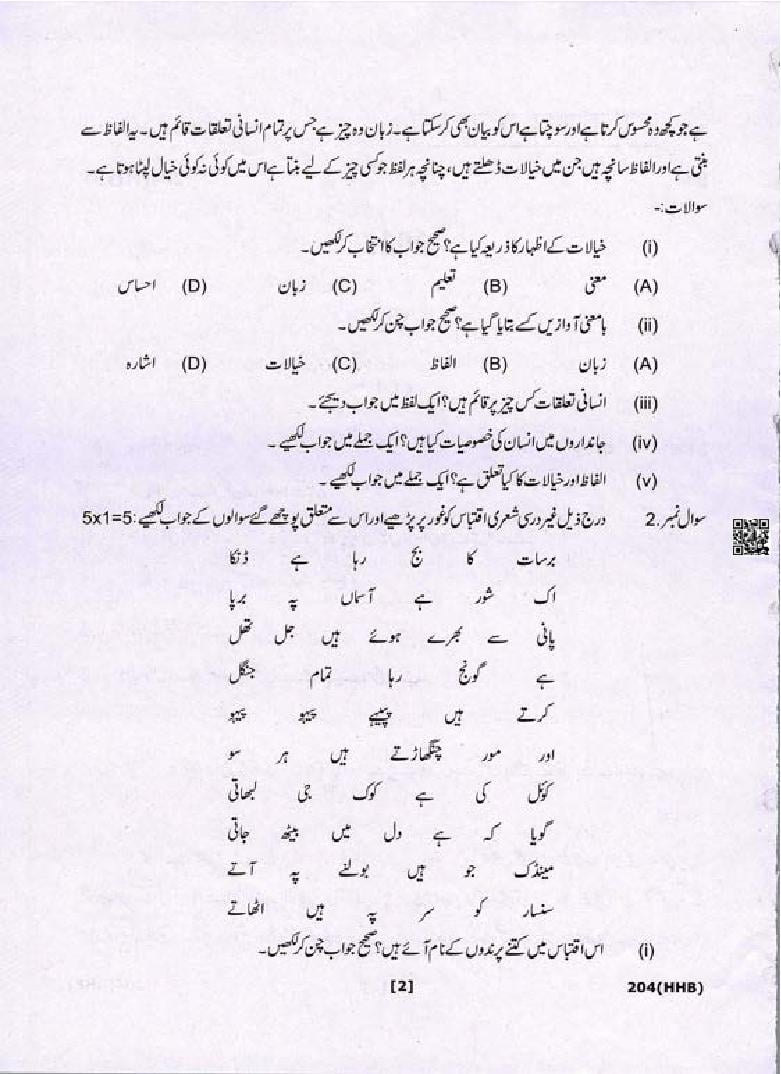 ہے جو کچھ وہ محسوس کرتا ہے اور سوچتا ہے اس کو بیان بھی کرسکتا ہے۔ زبان وہ چیز ہے جس پر تمام انسانی تعلقات قائم ہیں۔ یہ الفاظ سے
بنتی ہے اور الفاظ سانچہ ہیں جن میں خیالات ڈھلتے ہیں، چنانچہ ہر لفظ جو کسی چیز کے لیے بنتا ہے اس میں کوئی نہ کوئی خیال لپٹا ہوتا ہے۔
سوالات:-
(i) خیالات کے اظہار کا ذریعہ کیا ہے؟ صحیح جواب کا انتخاب کر لکھیں۔
(A) معنی (B) تعلیم (C) زبان (D) احساس
(ii) بامعنی آوازیں کسے بتایا گیا ہے؟ صحیح جواب چن کر لکھیں۔
(A) زبان (B) الفاظ (C) خیالات (D) اشارہ
(iii) انسانی تعلقات کس چیز پر قائم ہیں؟ ایک لفظ میں جواب دیجئے۔
(iv) جانداروں میں انسان کی خصوصیات کیا ہیں؟ ایک جملے میں جواب لکھیے۔
(v) الفاظ اور خیالات کا کیا تعلق ہے؟ ایک جملے میں جواب لکھیے۔
سوال نمبر.2 درج ذیل غیر درسی شعری اقتباس کو غور پر پڑھیے اور اس سے متعلق پوچھے گئے سوالوں کے جواب لکھیے: 5x1=5
برسات کا بج رہا ہے ڈنکا
اک شور ہے آسماں پہ برپا
پانی سے بھرے ہوئے ہیں جل تھل
ہے گونج رہا تمام جنگل
کرتے ہیں پپیہے پیہو پیہو
اور مور چنگھاڑتے ہیں ہر سو
کوئل کی ہے کوک جی لبھاتی
گویا کہ ہے دل میں بیٹھ جاتی
مینڈک جو ہیں بولنے پہ آتے
سنسار کو سر پہ ہیں اٹھاتے
(i) اس اقتباس میں کتنے پرندوں کے نام آئے ہیں؟ صحیح جواب چن کر لکھیں۔
204(HHB) [2]